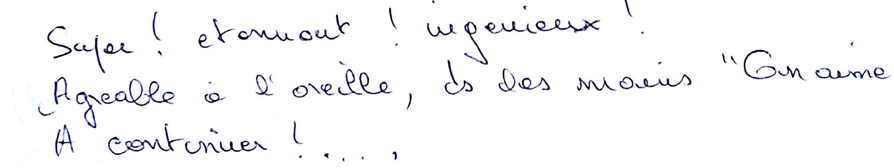 Super ! etonnant ! ingenieux !
Agreable à l'oreille, ds des mains "On aime
A continuer !....,